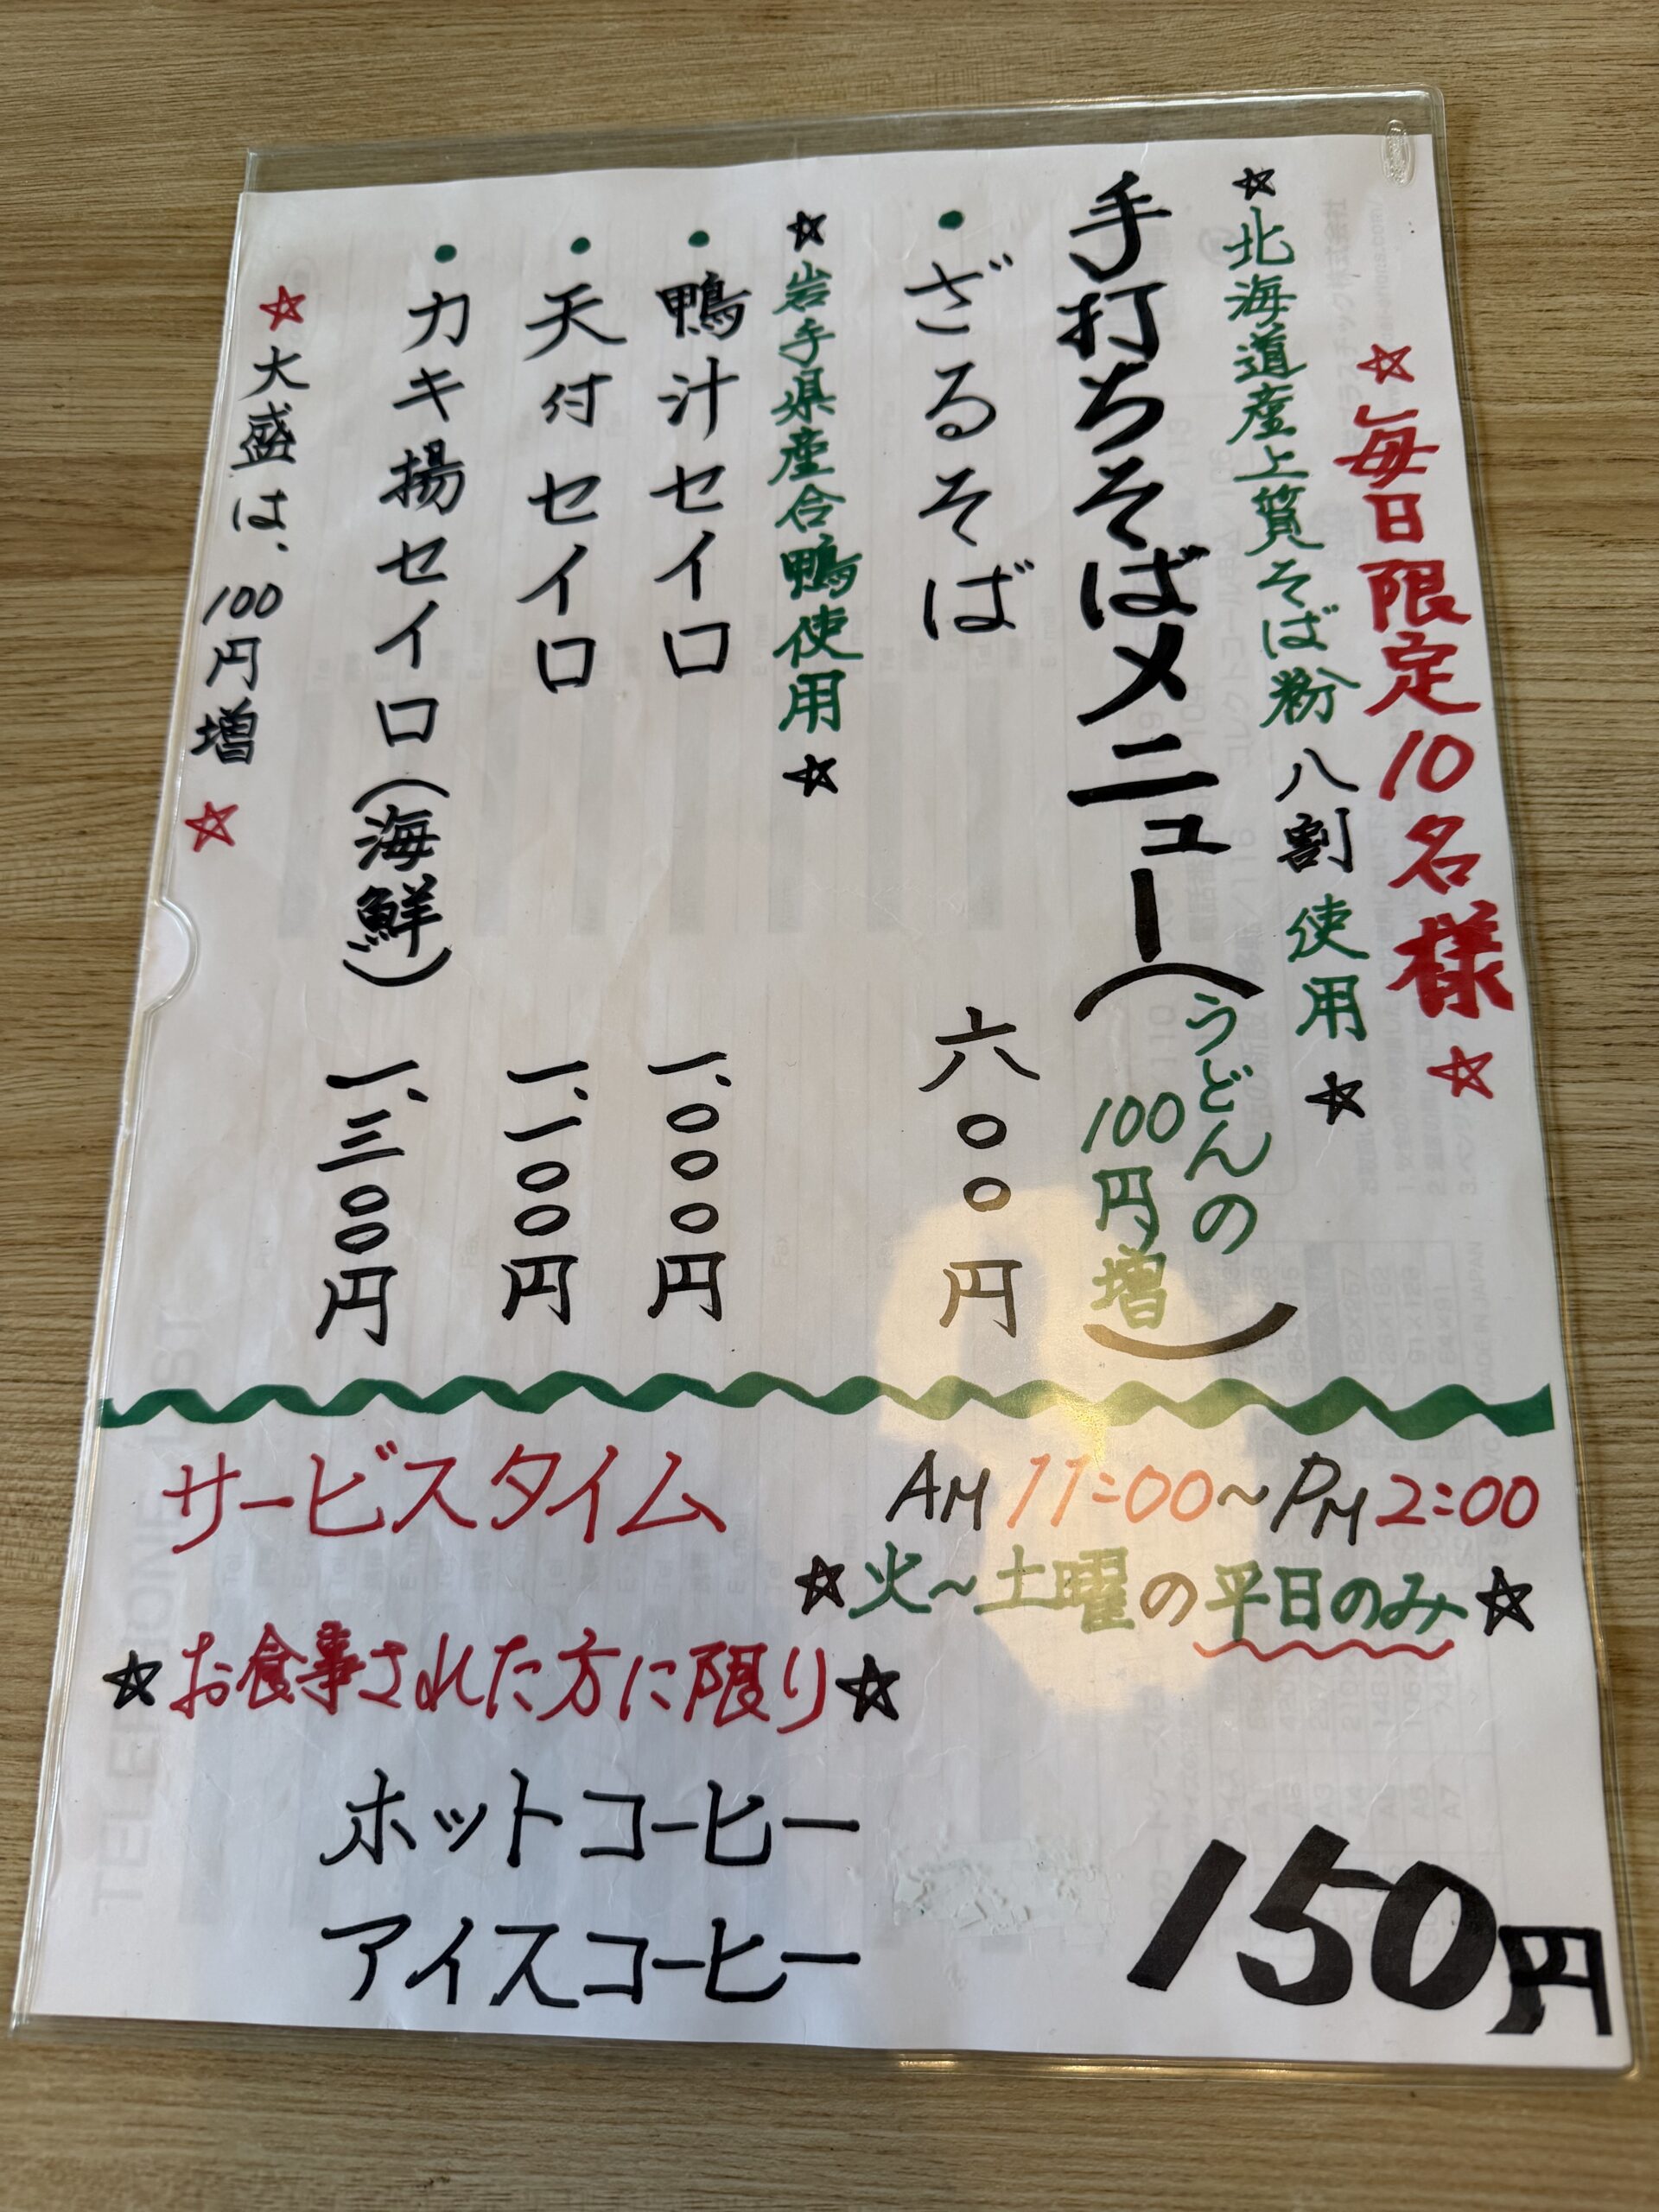 ☆毎日限定10名様☆
☆北海道産上質そば粉八割使用☆
手打ちそばメニュー(うどんの
100円増)
・ざるそば 六〇〇円
☆岩手県産合鴨使用☆
・鴨汁セイロ 一、〇〇〇円
・天付セイロ 一、一〇〇円
・カキ揚セイロ(海鮮) 一、三〇〇円
☆大盛は、100円増☆
サービスタイム AM 11:00~PM 2:00
☆火~土曜の平日のみ☆
☆お食事された方に限り☆
ホットコーヒー
アイスコーヒー
150円